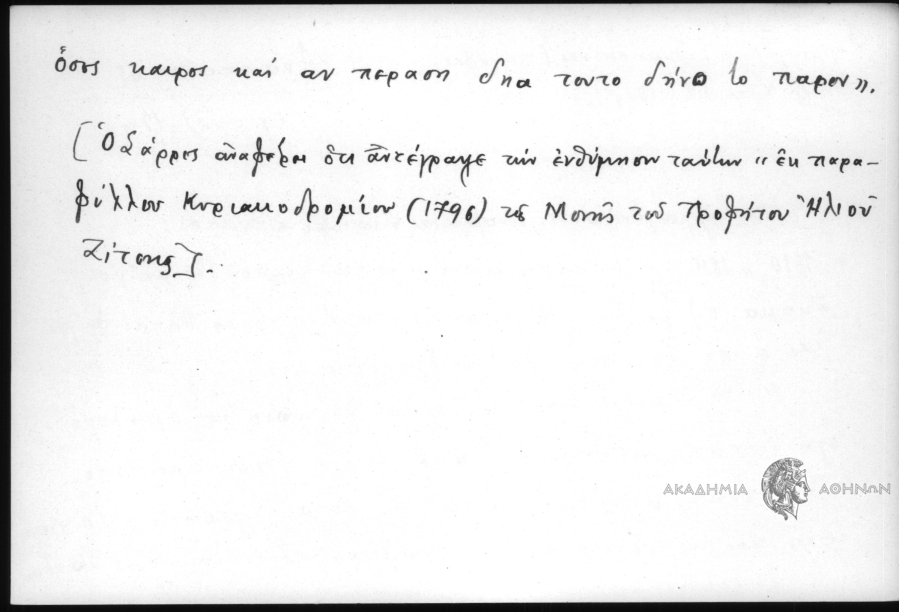 ὅσος καιρος καί αν περαση δηα τουτο δήνο το παρον».
[Ὁ Σάρρος ἀναφέρει ὅτι ἀντέγραψε τὴν ἐνθύμησιν ταύτην «ἐκ παρα-
φύλλου Κυριακοδρομίου (1796) τῆς Μονῆς τοῦ Προφήτου Ἠλιοῦ
Ζίτσης].
ΑΚΑΔΗΜΙΑ ΑΘΗΝΩΝ